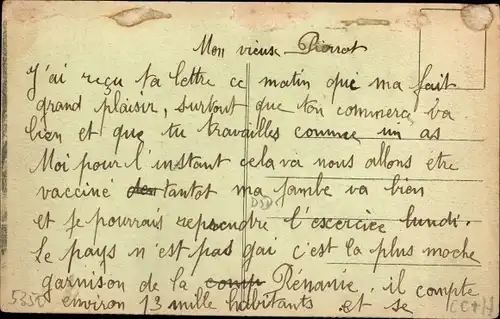 Mon vieux Pierrot
J'ai reçu ta lettre ce matin qui ma fait
grand plaisir, surtout que ton commerce va
bien et que tu travailles comme un as
Moi pour l'instant cela va nous allons étre
vacciné tantot ma jambe va bien
et je pourrais reprendre l'exercice lundi.
Le pays n'est pas gai c'est la plus moche
garnison de la Rénanie. il compte
environ 13 mille habitants et se
5350